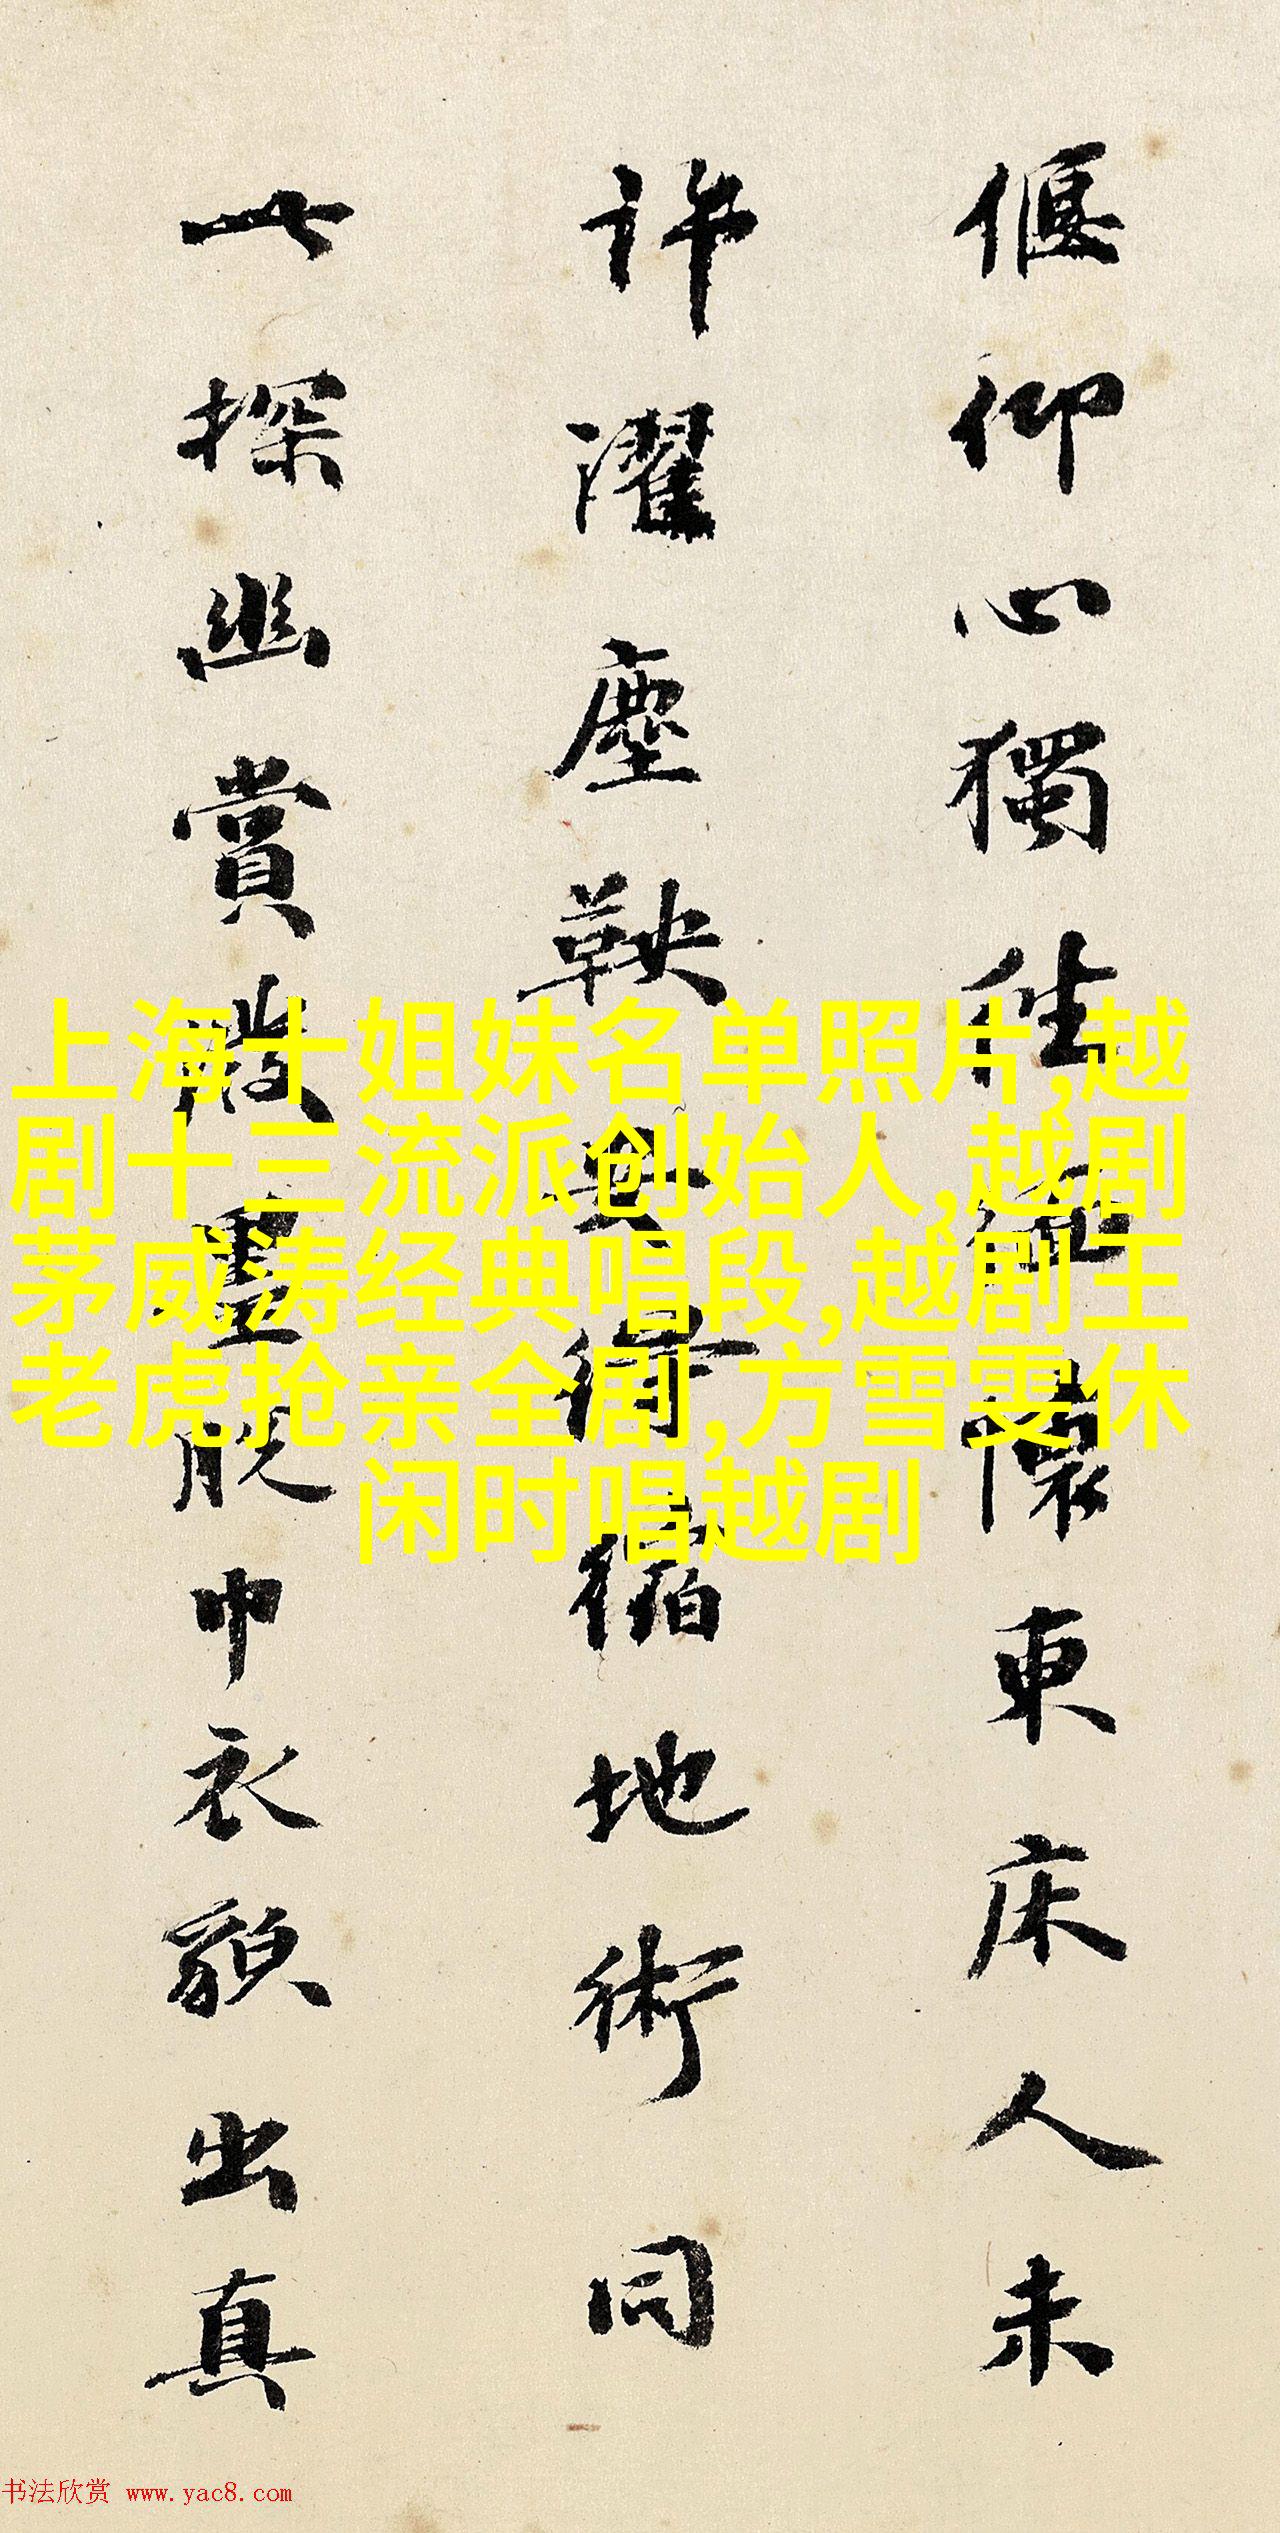 偃仰心獨往緬懷東床人未
許濯塵鞅安得縮地術同
探幽賞殷憂脱巾衣貌出真
上海十姐妹名单照片,越
剧十三流派创始人,越剧
茅威涛经典唱段,越剧王
老虎抢亲全剧,方雪雯休
闲时唱越剧
书法欣赏 www.yac8.com